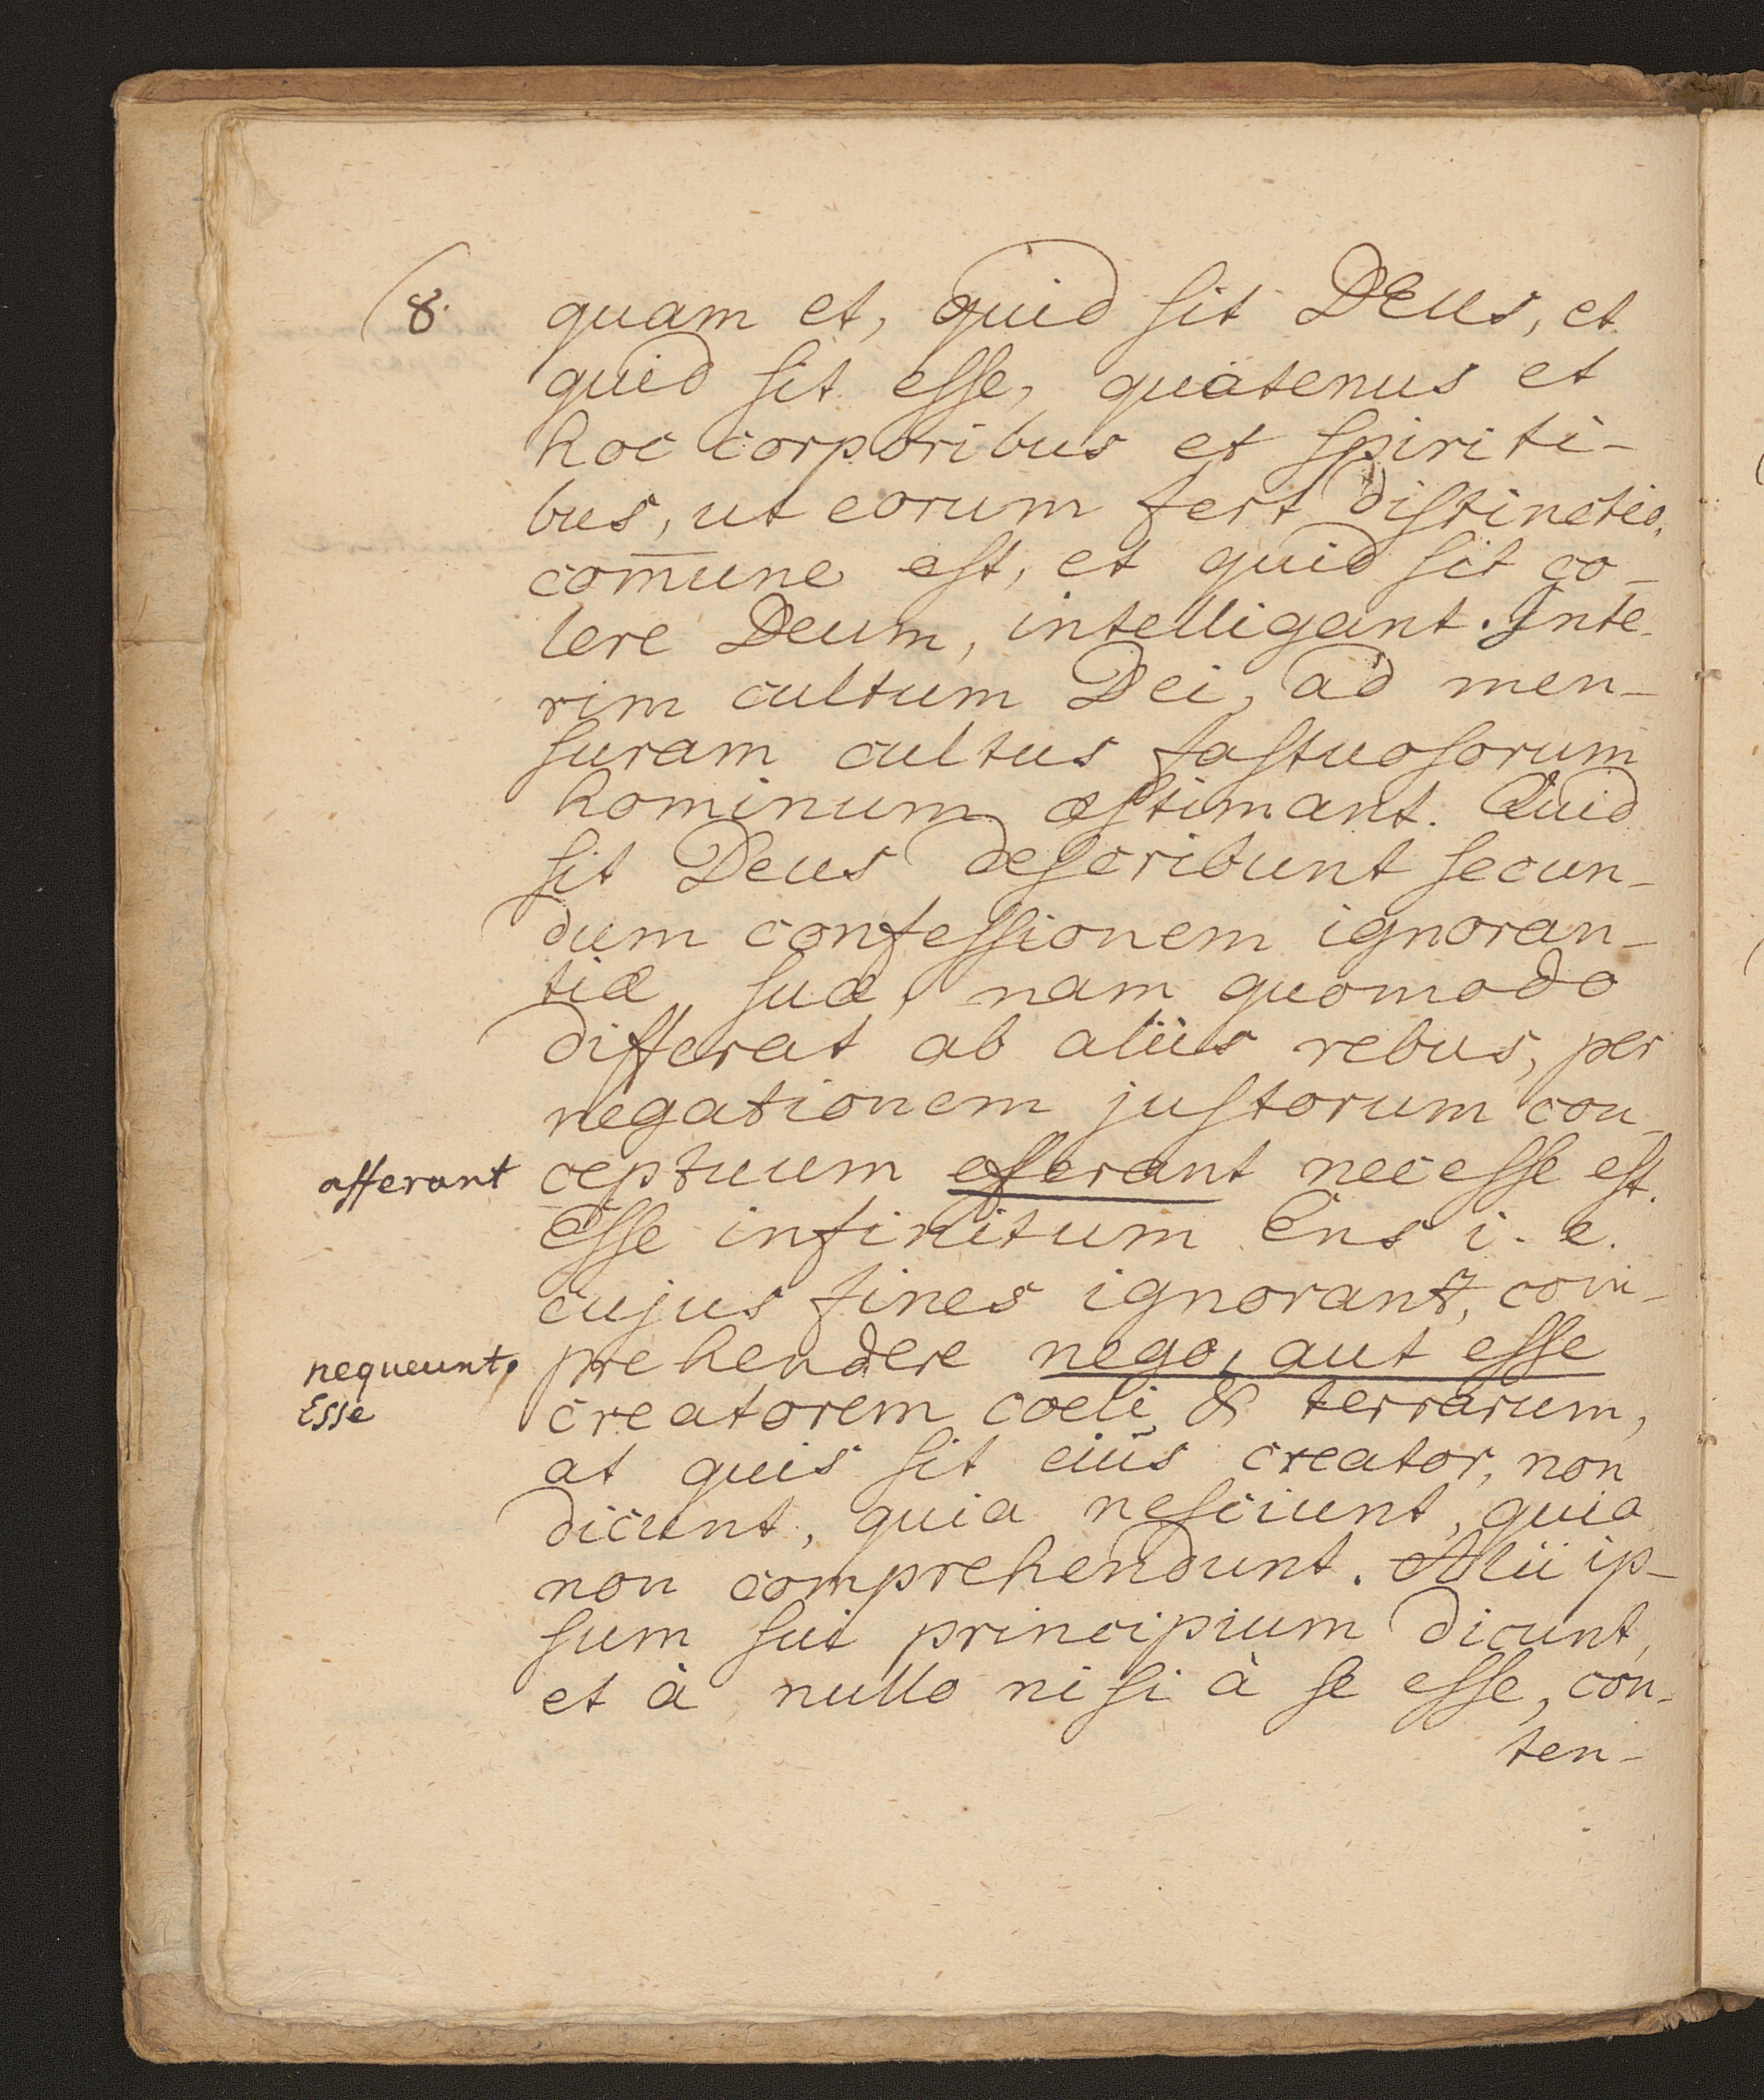 (8.
quam et, quid ſit DEus, et
quid ſit eſſe, quätenus et
hoc corporibus et ſpiriti-
bus, ut eorum fert diſtinctio,
com̄une eſt, et quid ſit co-
lere Deum, intelligant. Inte-
rim cultum Dei, ad men-
ſuram cultus faſtuoſorum
hominum æſtimant. Quid
ſit Deus deſcribunt ſecun-
dum confeſſionem ignoran-
tiæ ſuæ, nam quomodo
differat ab aliis rebus, per
negationem juſtorum con-
afferant
ceptuum eferant neceſſe eſt.
eſſe infinitum Ens i. e.
cujus fines ignorant, com-
nequeunt.
prehendere nego, aut eſſe
Esse
creatorem coeli & terrarum,
at quis ſit eius creator, non
dicunt, quia neſciunt, quia
non comprehendunt. Alii ip-
ſum ſui principium dicunt,
et à nullo niſi à ſe eſſe, con-
ten-